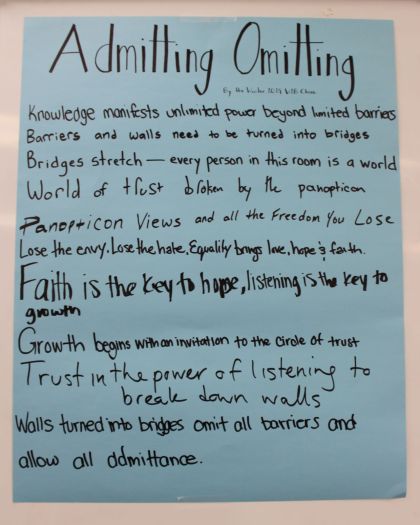 Admitting Omitting
By the Winter 2018 Class
Knowledge manifests unlimited power beyond limited barriers
Barriers and walls need to be turned into bridges
Bridges stretch — every person in this room is a world
World of trust broken by the panopticon
Panopticon Views and all the Freedom You Lose
Lose the envy. Lose the hate, Equality brings love, hope & faith.
Faith is the key to hope, listening is the key to
growth
Growth begins with an invitation to the circle of trust
Trust in the power of listening to
break down walls
Walls turned into bridges omit all barriers and
allow all admittance.